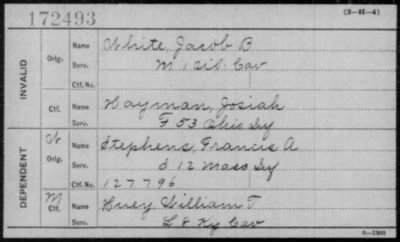 172493
(3-H-4)
INVALID
Orig.
Name White, Jacob B
Serv. M 1 Sib. Cav
Ctf. No.
Ctf.
Name Hayman, Josiah
Serv. F 53 Ohio Iy
DEPENDENT
W
Orig.
Name Stephens, Francis A
Serv. 12 Mass Iy
Ctf. No. 127796
M
Ctf.
Name Huey William T
Serv. L 8 Ky Cav